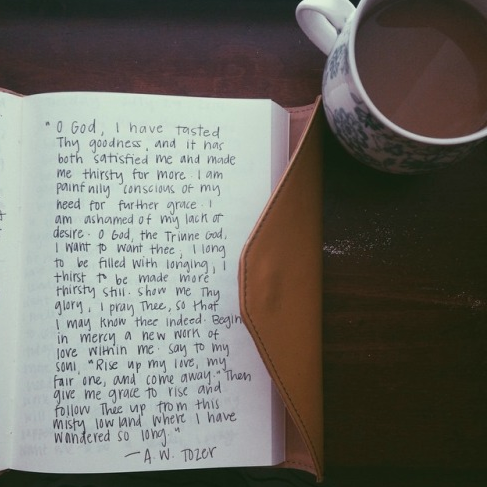 "O God, I have tasted
Thy goodness, and it has
both satisfied me and made
me thirsty for more. I am
painfully conscious of my
need for further grace. I
am ashamed of my lack of
desire. O God, the Triune God,
I want to want thee; I long
to be filled with longing; I
thirst to be made more
thirsty still. Show me Thy
glory, I pray Thee, so that
I may know thee indeed. Begin
in mercy a new work of
love within me. Say to my
soul, "Rise up my love, my
fair one, and come away." Then
give me grace to rise and
follow Thee up from this
misty lowland where I have
wandered so long."
—A.W. Tozer